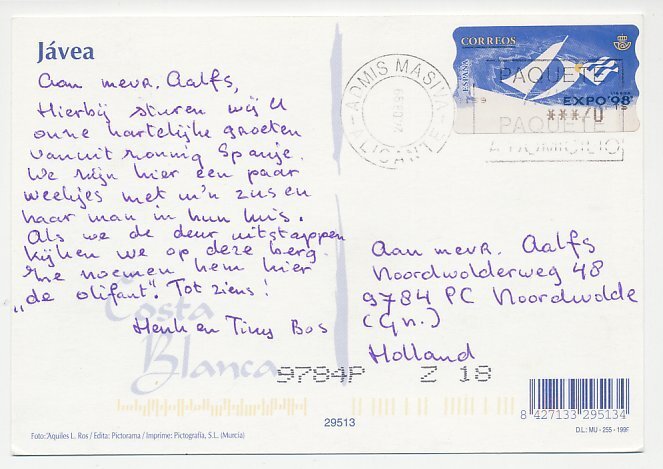 Jávea
Aan mevr. Aalfs,
Hierbij sturen wij U
onze hartelijke groeten
vanuit zonnig Spanje.
We zijn hier een paar
weekjes met m'n zus en
haar man in hun huis.
Als we de deur uitstappen
kijken we op deze berg.
Ze noemen hem hier
„de olifant". Tot ziens!
Henk en Tiny Bos
Costa
Blanca
ADMIS MASIVA
ALICANTE
CORREOS
ESPAÑA
EXPO'98
***/0
PAQUETE
PAQUETE
A DOMICILIO
Aan mevr. Aalfs
Noordwolderweg 48
9784 PC Noordwolde
(Gn.)
Holland
9784P Z 18
29513
8 427133 295134
Foto: Aquiles L. Ros / Edita: Pictorama / Imprime: Pictografía, S.L. (Murcia)